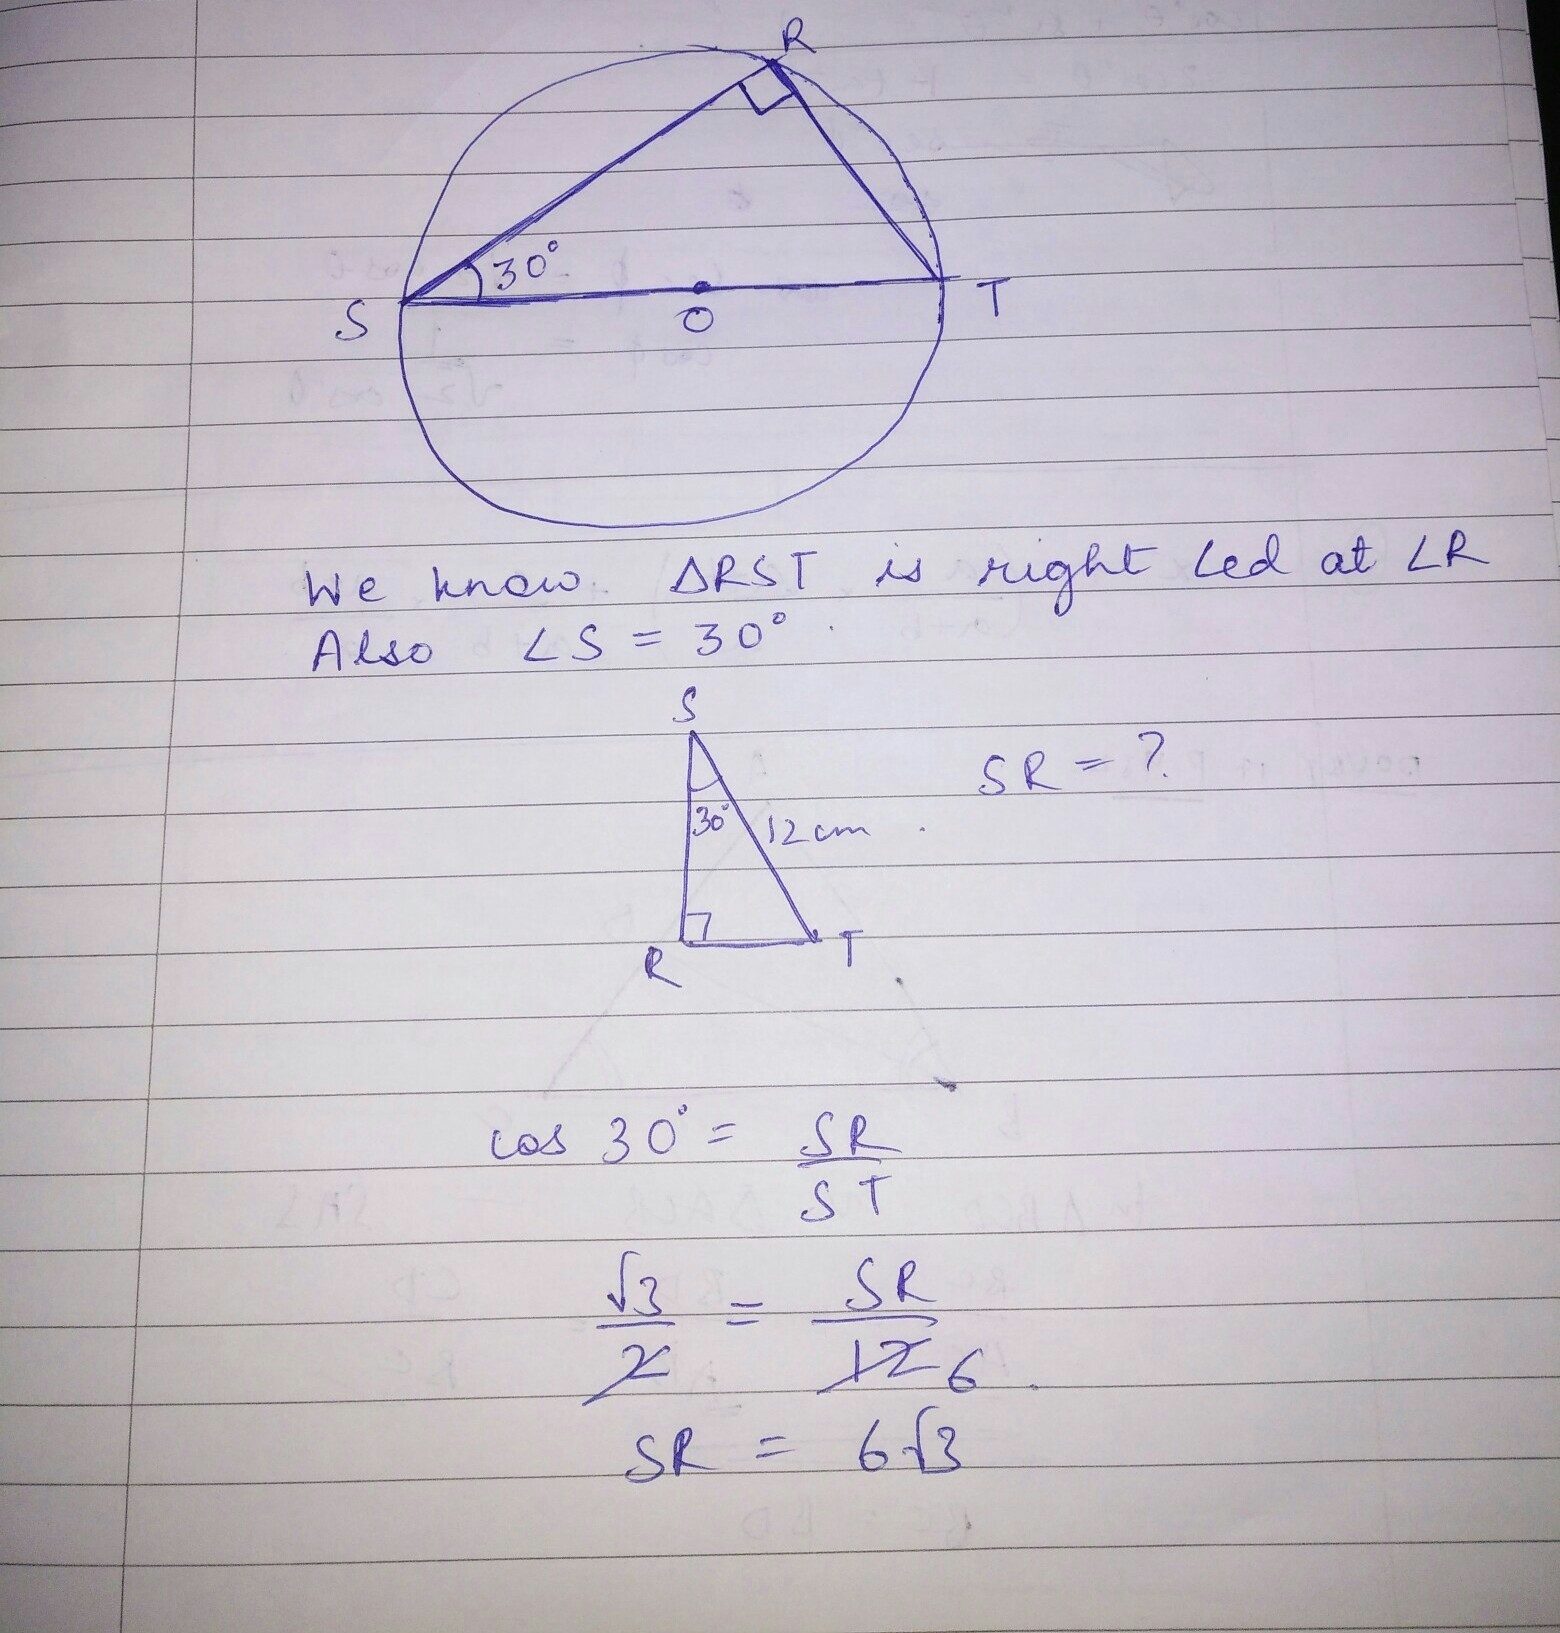 R
30°
S
O
T
We know ΔRST is right ∠ed at ∠R
Also ∠S = 30°.
S
SR = ?
30°
12 cm.
R
T
cos 30° = SR
ST
√3 = SR
2 12 6.
SR = 6√3